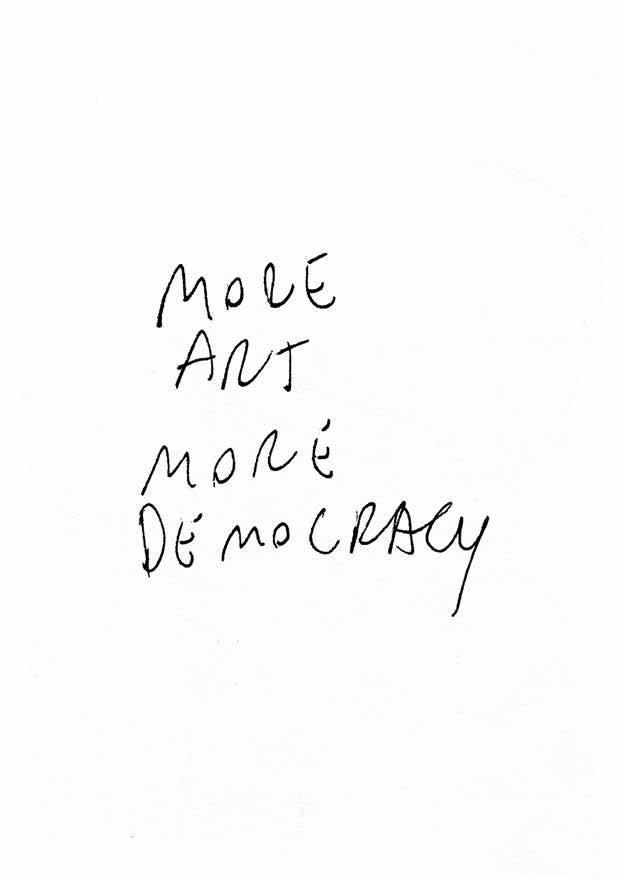 MORE
ART
MORE
DEMOCRACY